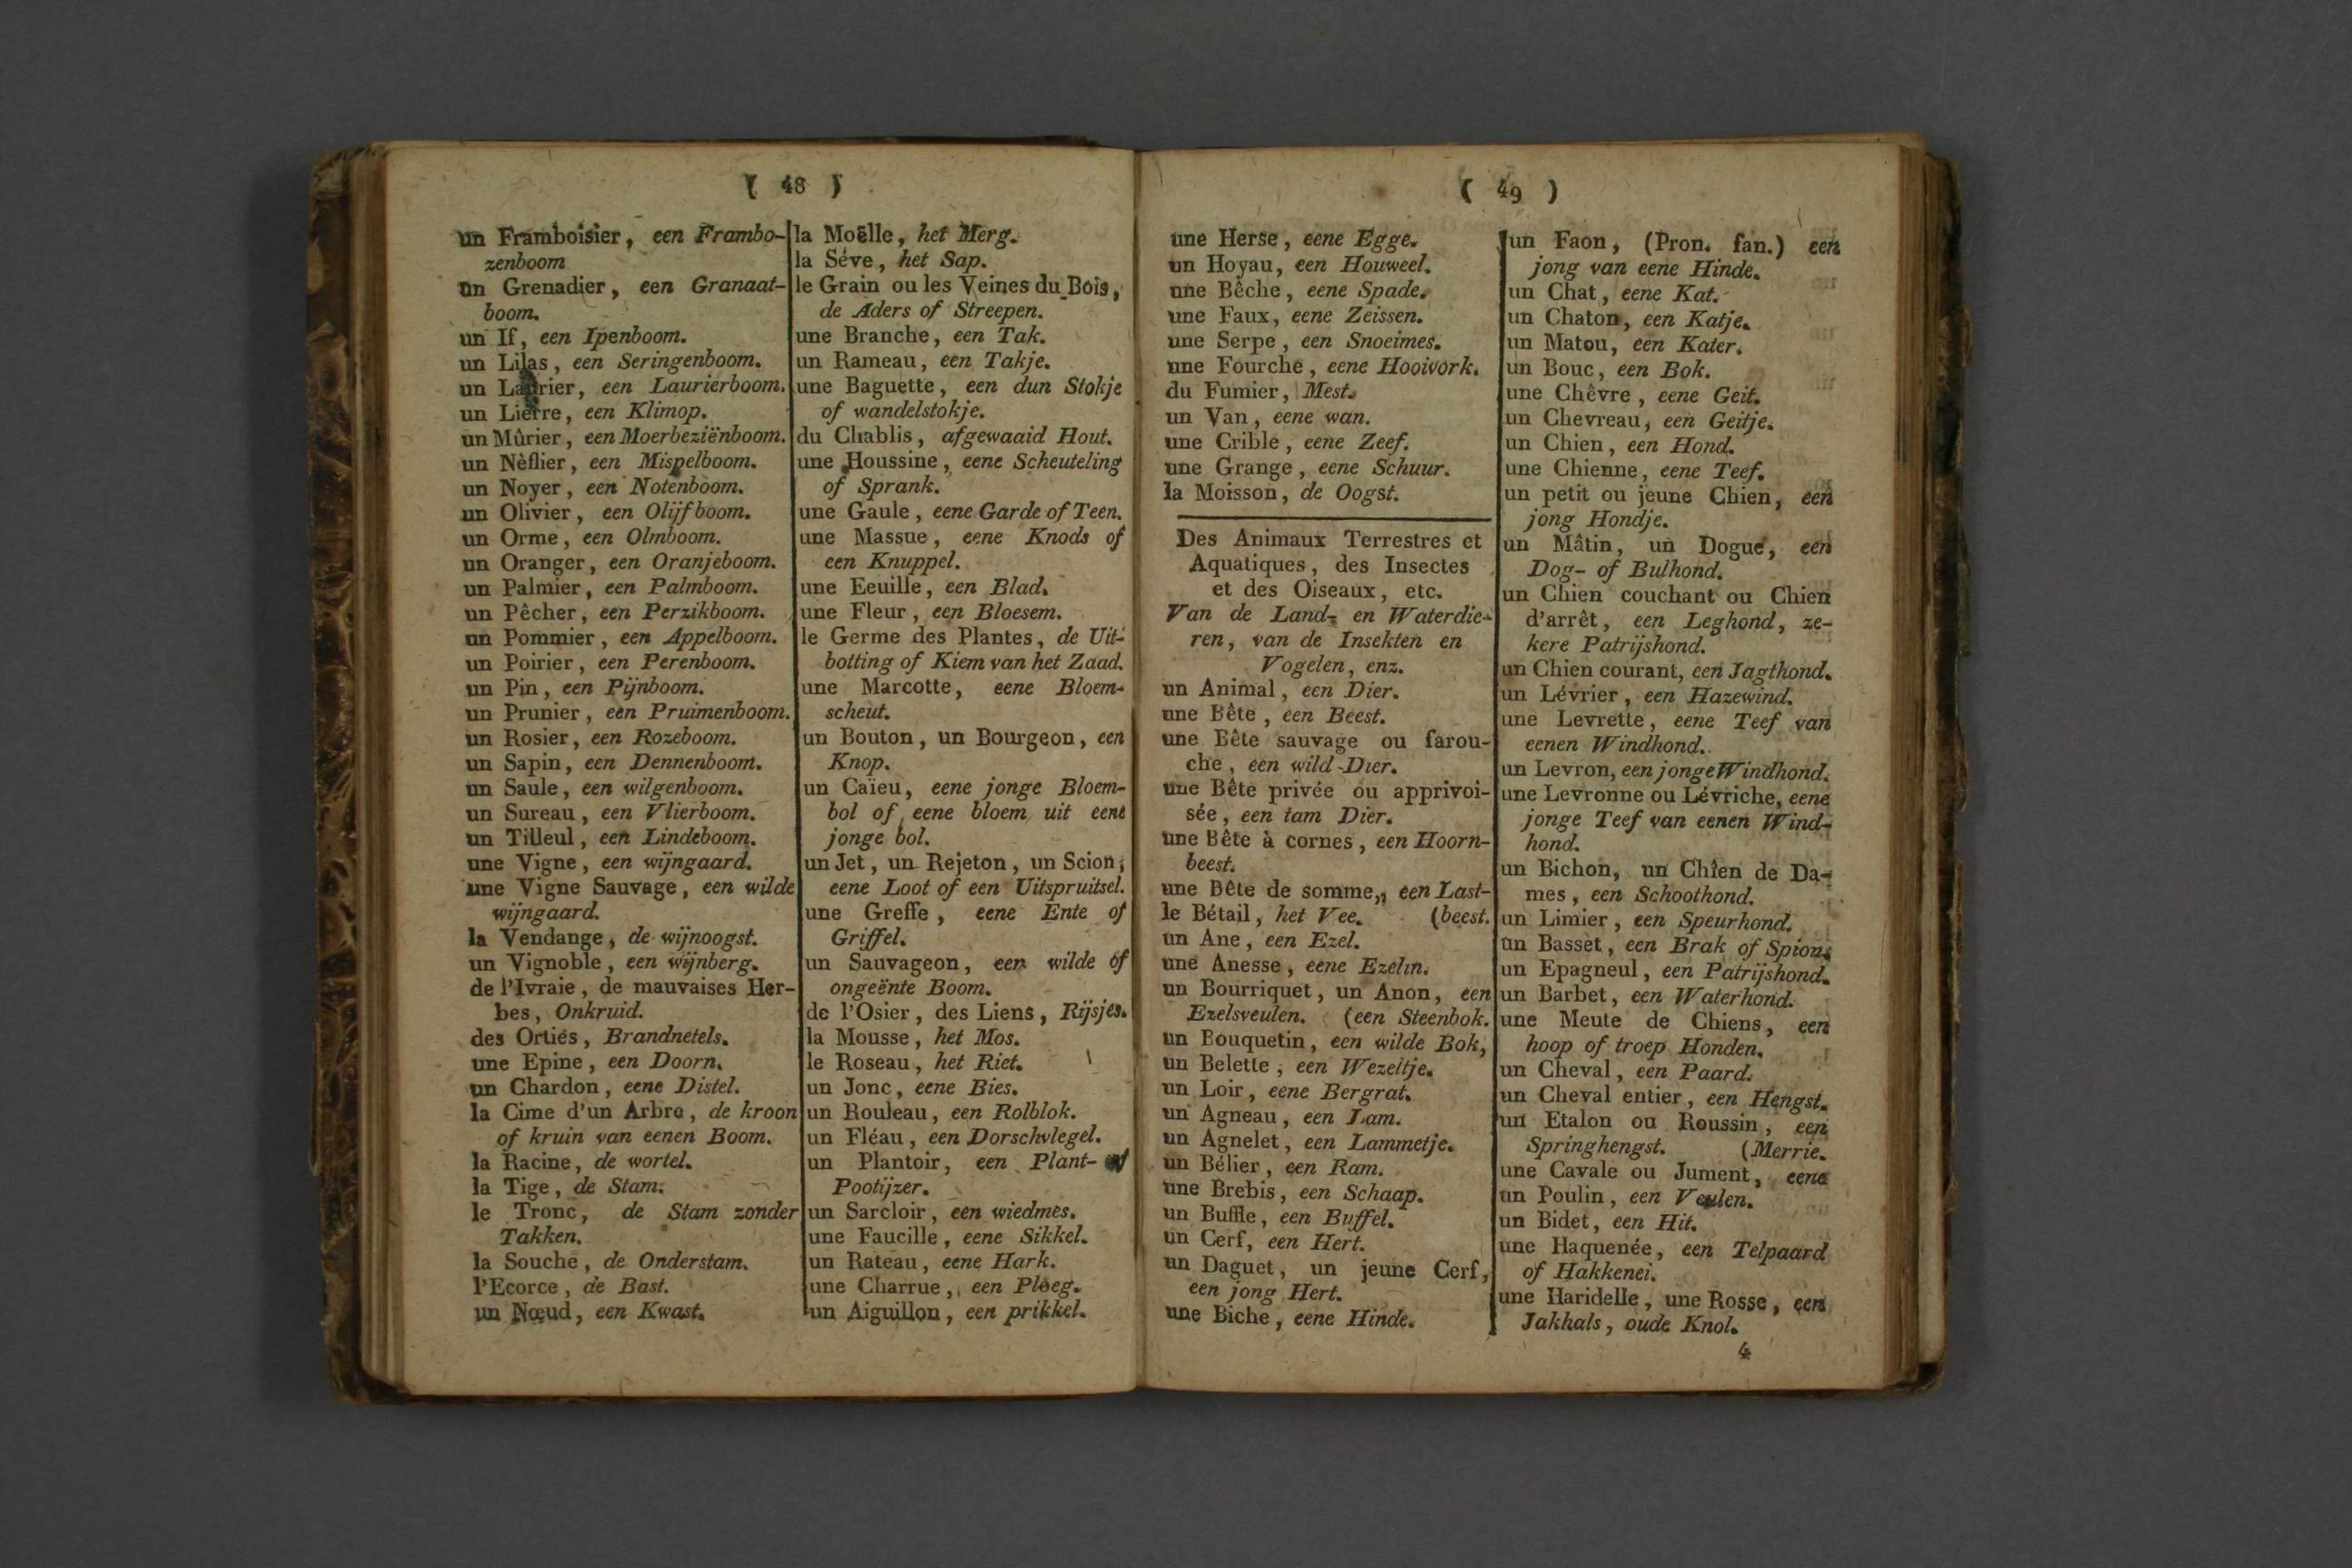 ( 48 )
un Framboisier, een Frambo-
zenboom
un Grenadier, een Granaat-
boom.
un If, een Ipenboom.
un Lilas, een Seringenboom.
un Laurier, een Laurierboom.
un Lierre, een Klimop.
un Mûrier, een Moerbeziënboom.
un Nèflier, een Mispelboom.
un Noyer, een Notenboom.
un Olivier, een Olijfboom.
un Orme, een Olmboom.
un Oranger, een Oranjeboom.
un Palmier, een Palmboom.
un Pêcher, een Perzikboom.
un Pommier, een Appelboom.
un Poirier, een Perenboom.
un Pin, een Pijnboom.
un Prunier, een Pruimenboom.
un Rosier, een Rozeboom.
un Sapin, een Dennenboom.
un Saule, een wilgenboom.
un Sureau, een Vlierboom.
un Tilleul, een Lindeboom.
une Vigne, een wijngaard.
une Vigne Sauvage, een wilde
wijngaard.
la Vendange, de wijnoogst.
un Vignoble, een wijnberg.
de l'Ivraie, de mauvaises Her-
bes, Onkruid.
des Orties, Brandnetels.
une Epine, een Doorn.
un Chardon, eene Distel.
la Cime d'un Arbre, de kroon
of kruin van eenen Boom.
la Racine, de wortel.
la Tige, de Stam.
le Tronc, de Stam zonder
Takken.
la Souche, de Onderstam.
l'Ecorce, de Bast.
un Nœud, een Kwast.
la Moëlle, het Merg.
la Séve, het Sap.
le Grain ou les Veines du Bois,
de Aders of Streepen.
une Branche, een Tak.
un Rameau, een Takje.
une Baguette, een dun Stokje
of wandelstokje.
du Chablis, afgewaaid Hout.
une Houssine, eene Scheuteling
of Sprank.
une Gaule, eene Garde of Teen.
une Massue, eene Knods of
een Knuppel.
une Eeuille, een Blad.
une Fleur, een Bloesem.
le Germe des Plantes, de Uit-
botting of Kiem van het Zaad.
une Marcotte, eene Bloem-
scheut.
un Bouton, un Bourgeon, een
Knop.
un Caïeu, eene jonge Bloem-
bol of eene bloem uit eene
jonge bol.
un Jet, un Rejeton, un Scion,
eene Loot of een Uitspruitsel.
une Greffe, eene Ente of
Griffel.
un Sauvageon, een wilde of
ongeënte Boom.
de l'Osier, des Liens, Rijsjes.
la Mousse, het Mos.
le Roseau, het Riet.
un Jonc, eene Bies.
un Rouleau, een Rolblok.
un Fléau, een Dorschvlegel.
un Plantoir, een Plant- of
Pootijzer.
un Sarcloir, een wiedmes.
une Faucille, eene Sikkel.
un Rateau, eene Hark.
une Charrue, een Ploeg.
un Aiguillon, een prikkel.
( 49 )
une Herse, eene Egge.
un Hoyau, een Houweel.
une Bêche, eene Spade.
une Faux, eene Zeissen.
une Serpe, een Snoeimes.
une Fourche, eene Hooivork.
du Fumier, Mest.
un Van, eene wan.
une Crible, eene Zeef.
une Grange, eene Schuur.
la Moisson, de Oogst.
Des Animaux Terrestres et
Aquatiques, des Insectes
et des Oiseaux, etc.
Van de Land- en Waterdie-
ren, van de Insekten en
Vogelen, enz.
un Animal, een Dier.
une Bête, een Beest.
une Bête sauvage ou farou-
che, een wild-Dier.
une Bête privée ou apprivoi-
sée, een tam Dier.
une Bête à cornes, een Hoorn-
beest.
une Bête de somme, een Last-
le Bétail, het Vee. (beest.
un Ane, een Ezel.
une Anesse, eene Ezelin.
un Bourriquet, un Anon, een
Ezelsveulen. (een Steenbok.
un Bouquetin, een wilde Bok,
un Belette, een Wezeltje.
un Loir, eene Bergrat.
un Agneau, een Lam.
un Agnelet, een Lammetje.
un Bélier, een Ram.
une Brebis, een Schaap.
un Buffle, een Buffel.
un Cerf, een Hert.
un Daguet, un jeune Cerf,
een jong Hert.
une Biche, eene Hinde.
un Faon, (Pron. fan.) een
jong van eene Hinde.
un Chat, eene Kat.
un Chaton, een Katje.
un Matou, een Kater.
un Bouc, een Bok.
une Chêvre, eene Geit.
un Chevreau, een Geitje.
un Chien, een Hond.
une Chienne, eene Teef.
un petit ou jeune Chien, een
jong Hondje.
un Mâtin, un Dogue, een
Dog- of Bulhond.
un Chien couchant ou Chien
d'arrêt, een Leghond, ze-
kere Patrijshond.
un Chien courant, een Jagthond.
un Lévrier, een Hazewind.
une Levrette, eene Teef van
eenen Windhond.
un Levron, een jonge Windhond.
une Levronne ou Lévriche, eene
jonge Teef van eenen Wind-
hond.
un Bichon, un Chien de Da-
mes, een Schoothond.
un Limier, een Speurhond.
un Basset, een Brak of Spion.
un Epagneul, een Patrijshond.
un Barbet, een Waterhond.
une Meute de Chiens, een
hoop of troep Honden.
un Cheval, een Paard.
un Cheval entier, een Hengst.
un Etalon ou Roussin, een
Springhengst. (Merrie.
une Cavale ou Jument, eene
un Poulin, een Veulen.
un Bidet, een Hit.
une Haquenée, een Telpaard
of Hakkenei.
une Haridelle, une Rosse, een
Jakhals, oude Knol.
4